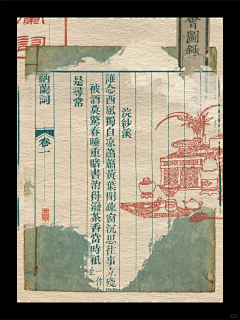 會圖錄
浣紗溪
誰念西風獨自涼蕭蕭黃葉閉疏窗沉思往事立殘
被酒莫驚春睡重賭書消得潑茶香當時祗一作
是尋常
納蘭詞
卷一